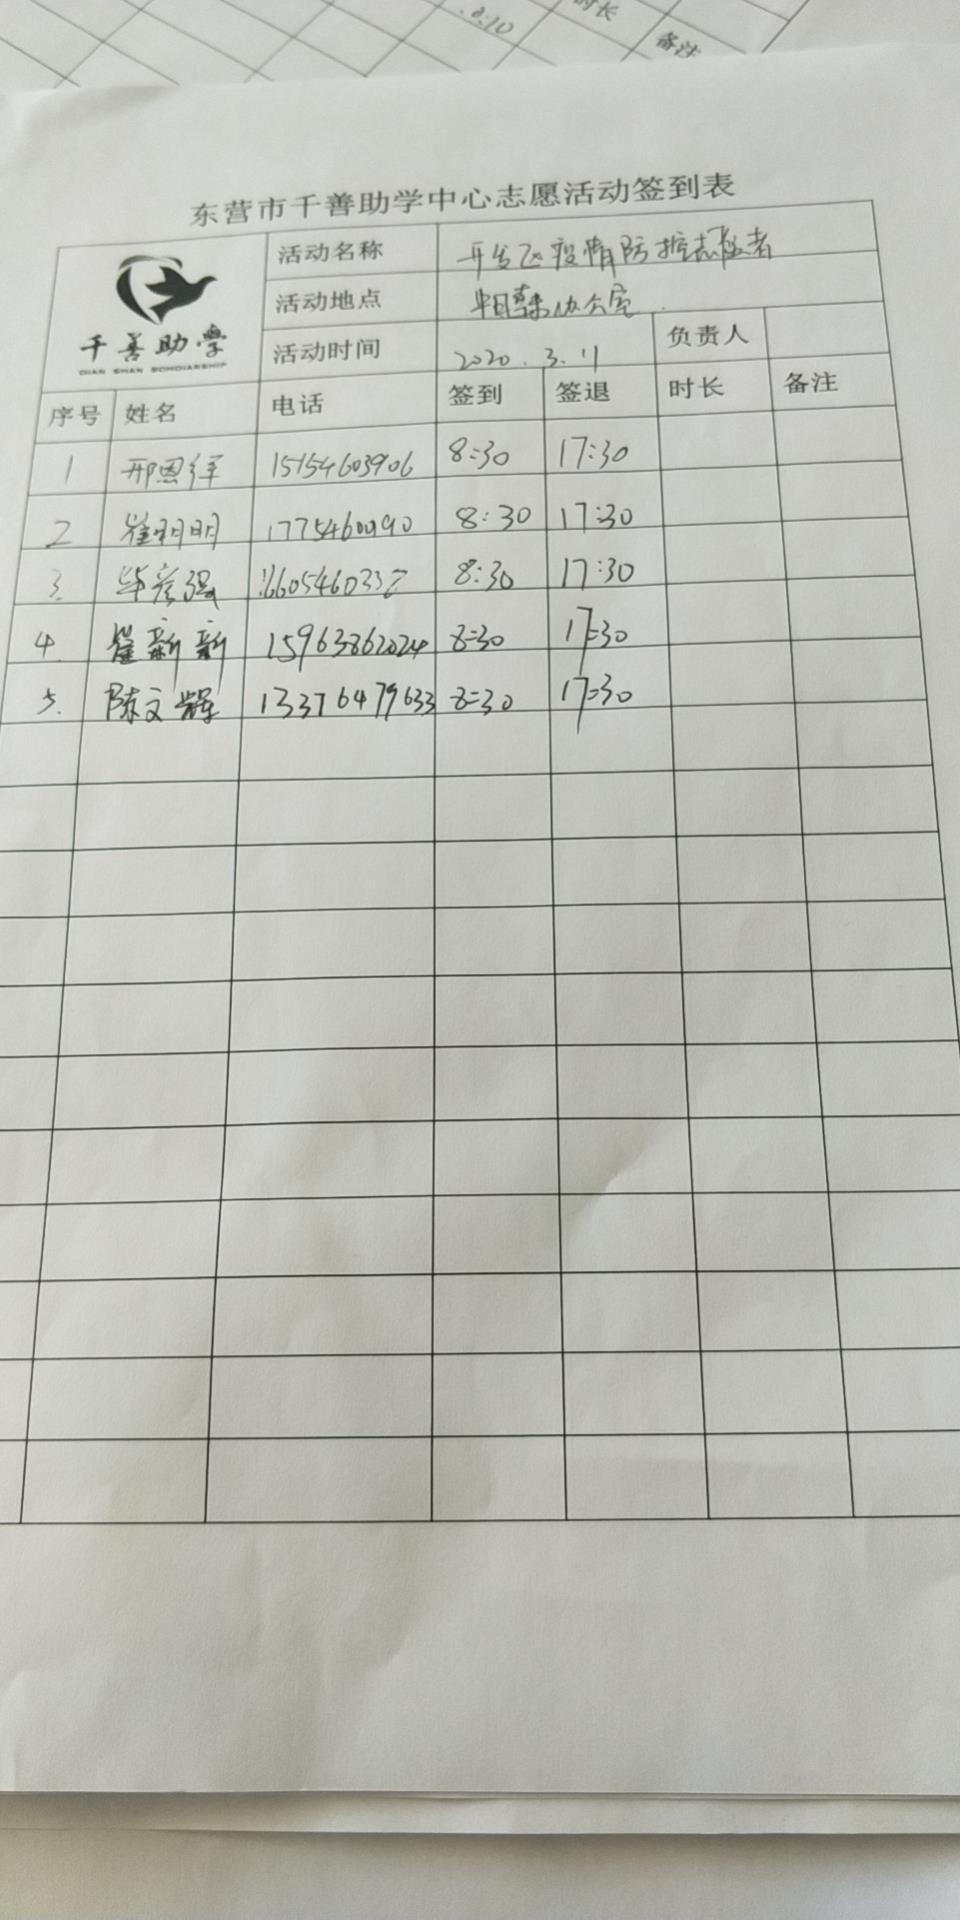 时长
备注
东营市千善助学中心志愿活动签到表
千善助学
QIAN SHAN SCHOLARSHIP
活动名称 开发区疫情防控志愿者
活动地点 办公室
活动时间 2020.3.11 负责人
序号 姓名 电话 签到 签退 时长 备注
1 邢恩 15154603906 8:30 17:30
2 崔明明 8:30 17:30
3. 毕彦强 8:30 17:30
4. 新新 15963862024 8:30 17:30
5. 陈文辉 13376479633 8:30 17:30